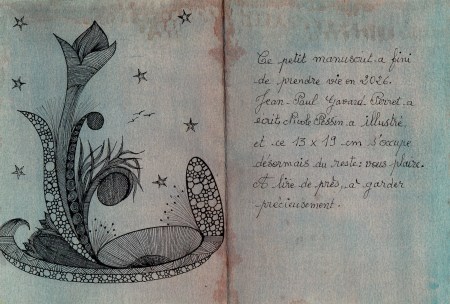 Ce petit manuscrit a fini
de prendre vie en 2026.
Jean-Paul Gavard-Perret a
écrit, Nicole Pessin a illustré
et ce 13 x 19 cm s'occupe
désormais du reste : vous plaire.
A lire de près, à garder
précieusement.